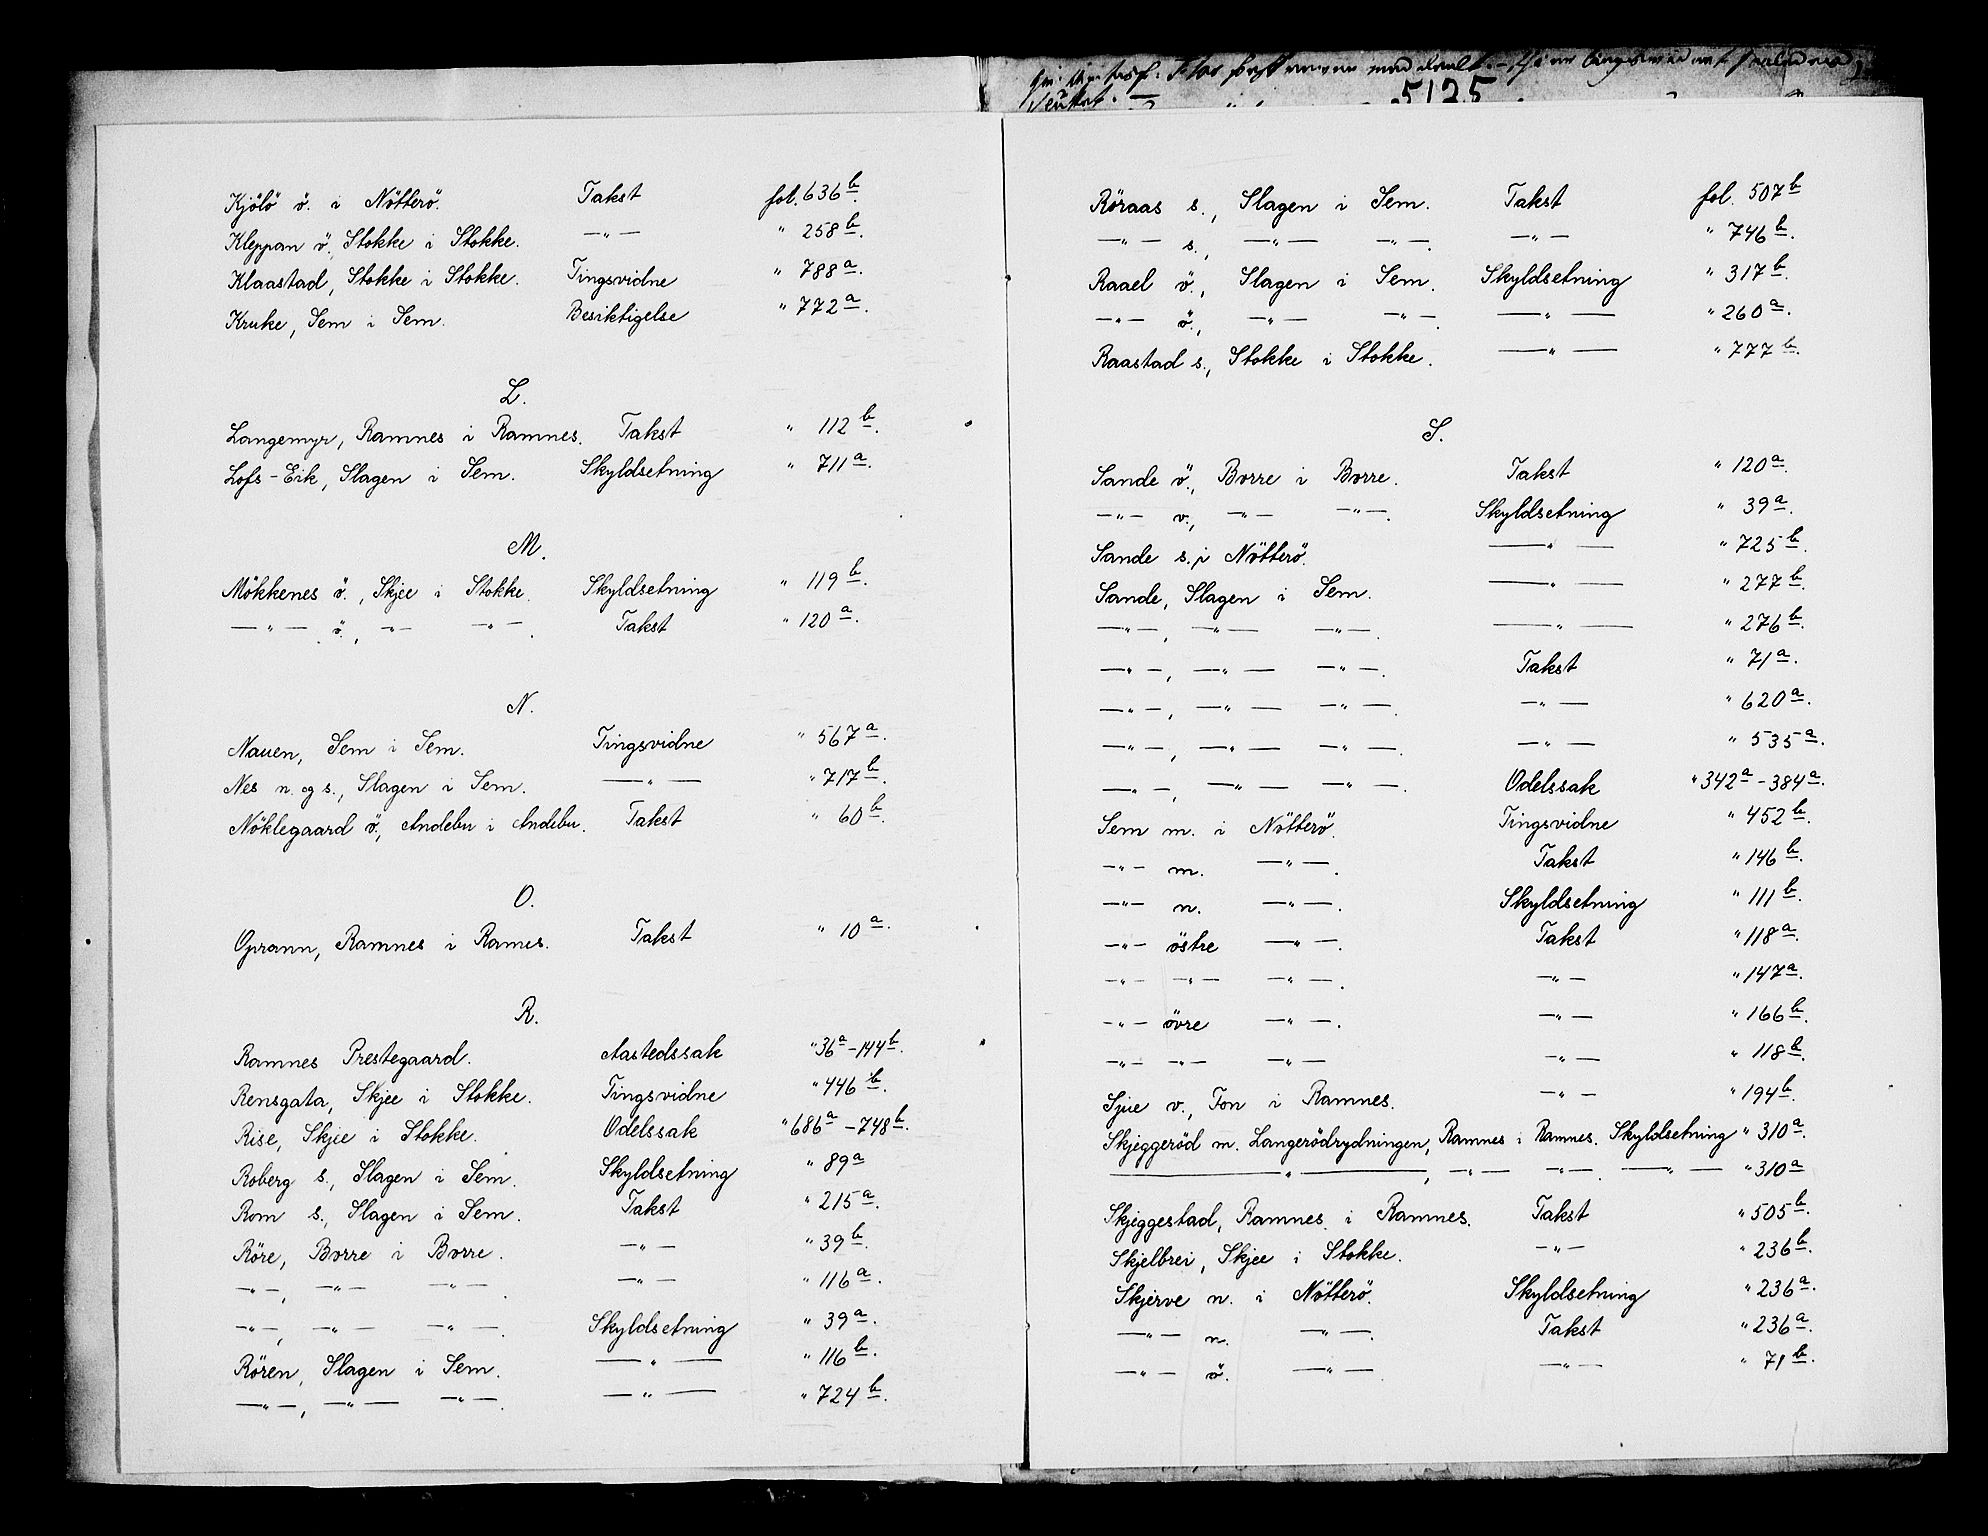 5125
Kjölö ö. i Nötterö. Takst fol. 636 b.
Kleppan ö., Stokke i Stokke. —"— " 258 b.
Klaastad, Stokke i Stokke. Tingsvidne " 788 a.
Kruke, Sem i Sem. Besiktigelse " 772 a.
L.
Langemyr, Ramnes i Ramnes. Takst " 112 b.
Lofs-Eik, Slagen i Sem. Skyldsetning " 711 a.
M.
Mökkenes ö., Skjee i Stokke. Skyldsetning " 119 b.
—"— ö., —"— —"—. Takst " 120 a.
N.
Nauen, Sem i Sem. Tingsvidne " 567 a.
Nes n. og s., Slagen i Sem. —"— " 717 b.
Nöklegaard ö., Andebu i Andebu. Takst " 60 b.
O.
Oprann, Ramnes i Rames. Takst " 10 a.
R.
Ramnes Prestegaard. Aastedssak " 36 a - 144 b.
Rensgata, Skjee i Stokke. Tingsvidne " 446 b.
Rise, Skjee i Stokke. Odelssak " 686 a - 748 b.
Roberg s., Slagen i Sem. Skyldsetning " 89 a
Rom s., Slagen i Sem. Takst " 215 a.
Röre, Borre i Borre. —"— " 39 b.
—"—, —"— —"—. —"— " 116 a.
—"—, —"— —"—. Skyldsetning " 39 a.
Rören, Slagen i Sem. —"— " 116 b.
—"—, —"— —"—. —"— " 724 b.
Röraas s., Slagen i Sem. Takst fol. 507 b
—"— s., —"— —"—. —"— " 746 b.
Raael ö., Slagen i Sem. Skyldsetning " 317 b.
—"— ö., —"— —"—. —"— " 260 a.
Raastad s., Stokke i Stokke. —"— " 777 b.
S.
Sande ö., Borre i Borre. Takst " 120 a.
—"— v., —"— —"—. Skyldsetning " 39 a.
Sande s. i Nötterö. —"— " 725 b.
Sande, Slagen i Sem. —"— " 277 b.
—"—, —"— —"—. —"— " 276 b.
—"—, —"— —"—. Takst " 71 a.
—"—, —"— —"—. —"— " 620 a.
—"—, —"— —"—. —"— " 535 a.
—"—, —"— —"—. Odelssak " 342 a - 384 a.
Sem m. i Nötterö. Tingsvidne " 452 b.
—"— m. —"—. Takst " 146 b.
—"— n. —"—. Skyldsetning " 111 b.
—"— östre —"—. Takst " 118 a.
—"— —"— —"—. —"— " 147 a.
—"— övre —"—. —"— " 166 b.
—"— —"— —"— —"— " 118 b.
Sjue v., Fon i Ramnes. —"— " 194 b.
Skjeggeröd m. Langerödrydningen, Ramnes i Ramnes. Skyldsetning " 310 a.
—"—, —"— —"—. —"— " 310 a
Skjeggestad, Ramnes. i Ramnes. Takst " 505 b.
Skjelbrei, Skjee i Stokke. —"— " 236 b.
Skjerve n. i Nötterö. Skyldsetning " 236 a.
—"— n. —"—. Takst " 236 a.
—"— ö. —"—. —"— " 71 b.